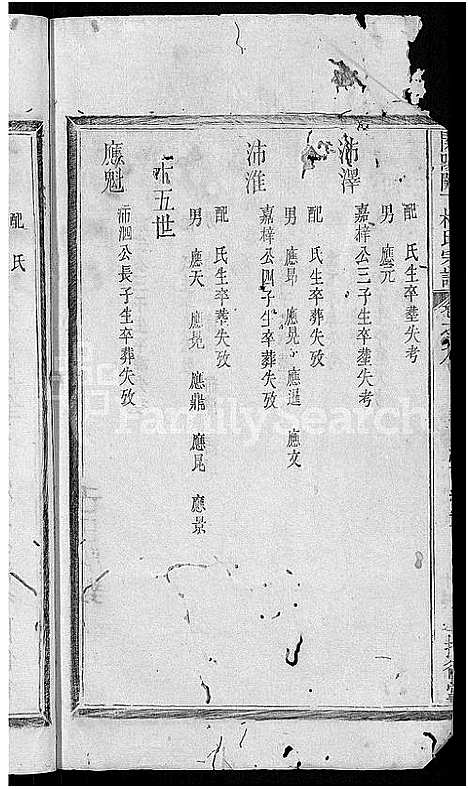 配 氏生卒塟失考
男 應元
嘉梓公三子生卒塟失考
沛澤
配 氏生卒葬失攷
男 應昂 應晃 應暹 應文
嘉梓公四子生卒葬失攷
沛淮
配 氏生卒塟失攷
男 應天 應晃 應鼎 應昆 應景
十五世
沛泗公長子生卒葬失攷
應魁
配 氏
FamilySearch